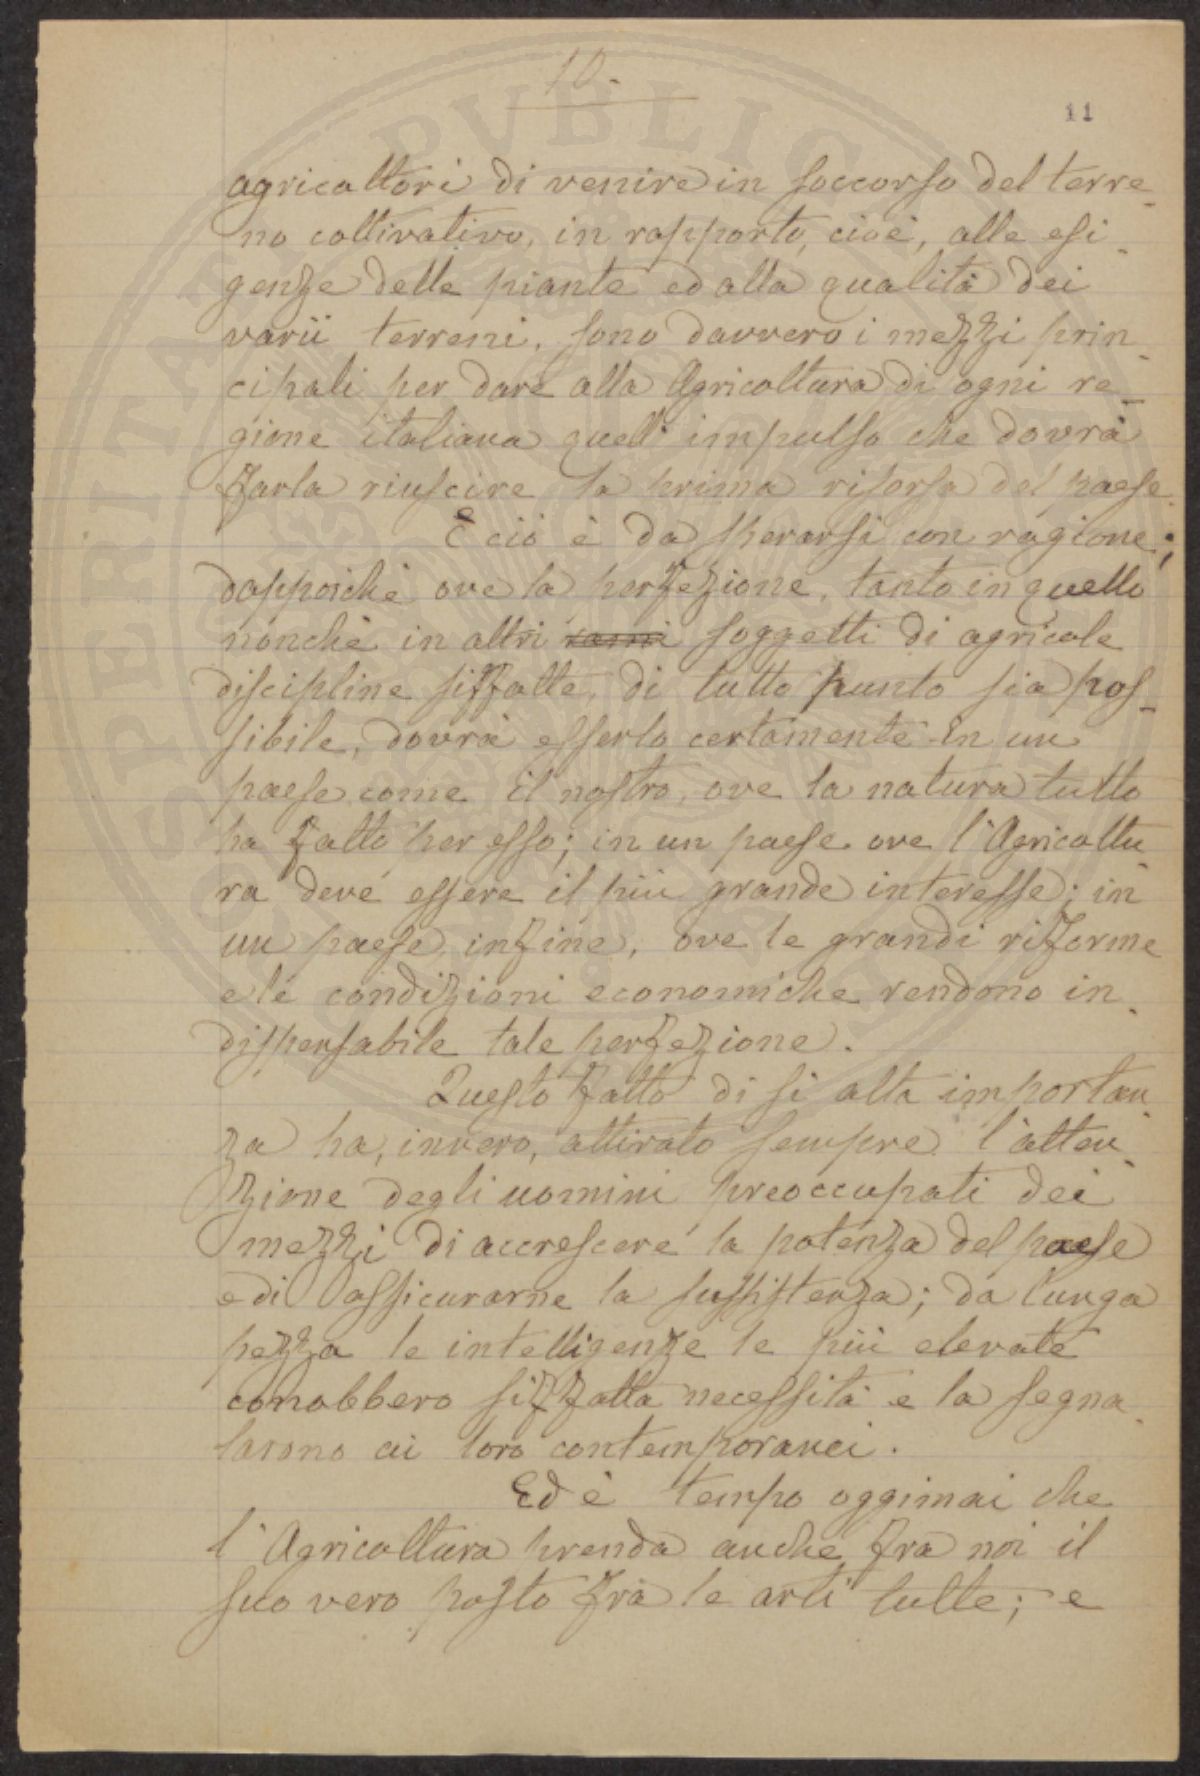 10.
11
agricoltori di venire in soccorso del terre-
no coltivativo, in rapporto, cioè, alle esi-
genze delle piante ed alla qualità dei
varii terreni, sono davvero i mezzi prin-
cipali per dare alla Agricoltura di ogni re-
gione italiana quell'impulso che dovrà
farla riuscire la prima risorsa del paese.
E ciò è da sperarsi con ragione;
dappoichè ove la perfezione, tanto in quello
nonchè in altri rami soggetti di agricole
discipline siffatte, di tutto punto sia pos-
sibile, dovrà esserlo certamente in un
paese come il nostro, ove la natura tutto
ha fatto per esso; in un paese ove l'Agricoltu-
ra deve essere il più grande interesse; in
un paese, infine, ove le grandi riforme
e le condizioni economiche rendono in-
dispensabile tale perfezione.
Questo fatto di sì alta importan-
za ha, invero, attirato sempre l'atten-
zione degli uomini preoccupati dei
mezzi di accrescere la potenza del paese
e di assicurarne la sussistenza; da lunga
pezza le intelligenze le più elevate
conobbero siffatta necessità e la segna-
larono ai loro contemporanei.
Ed è tempo oggimai che
l'Agricoltura prenda anche fra noi il
suo vero posto fra le arti tutte; e